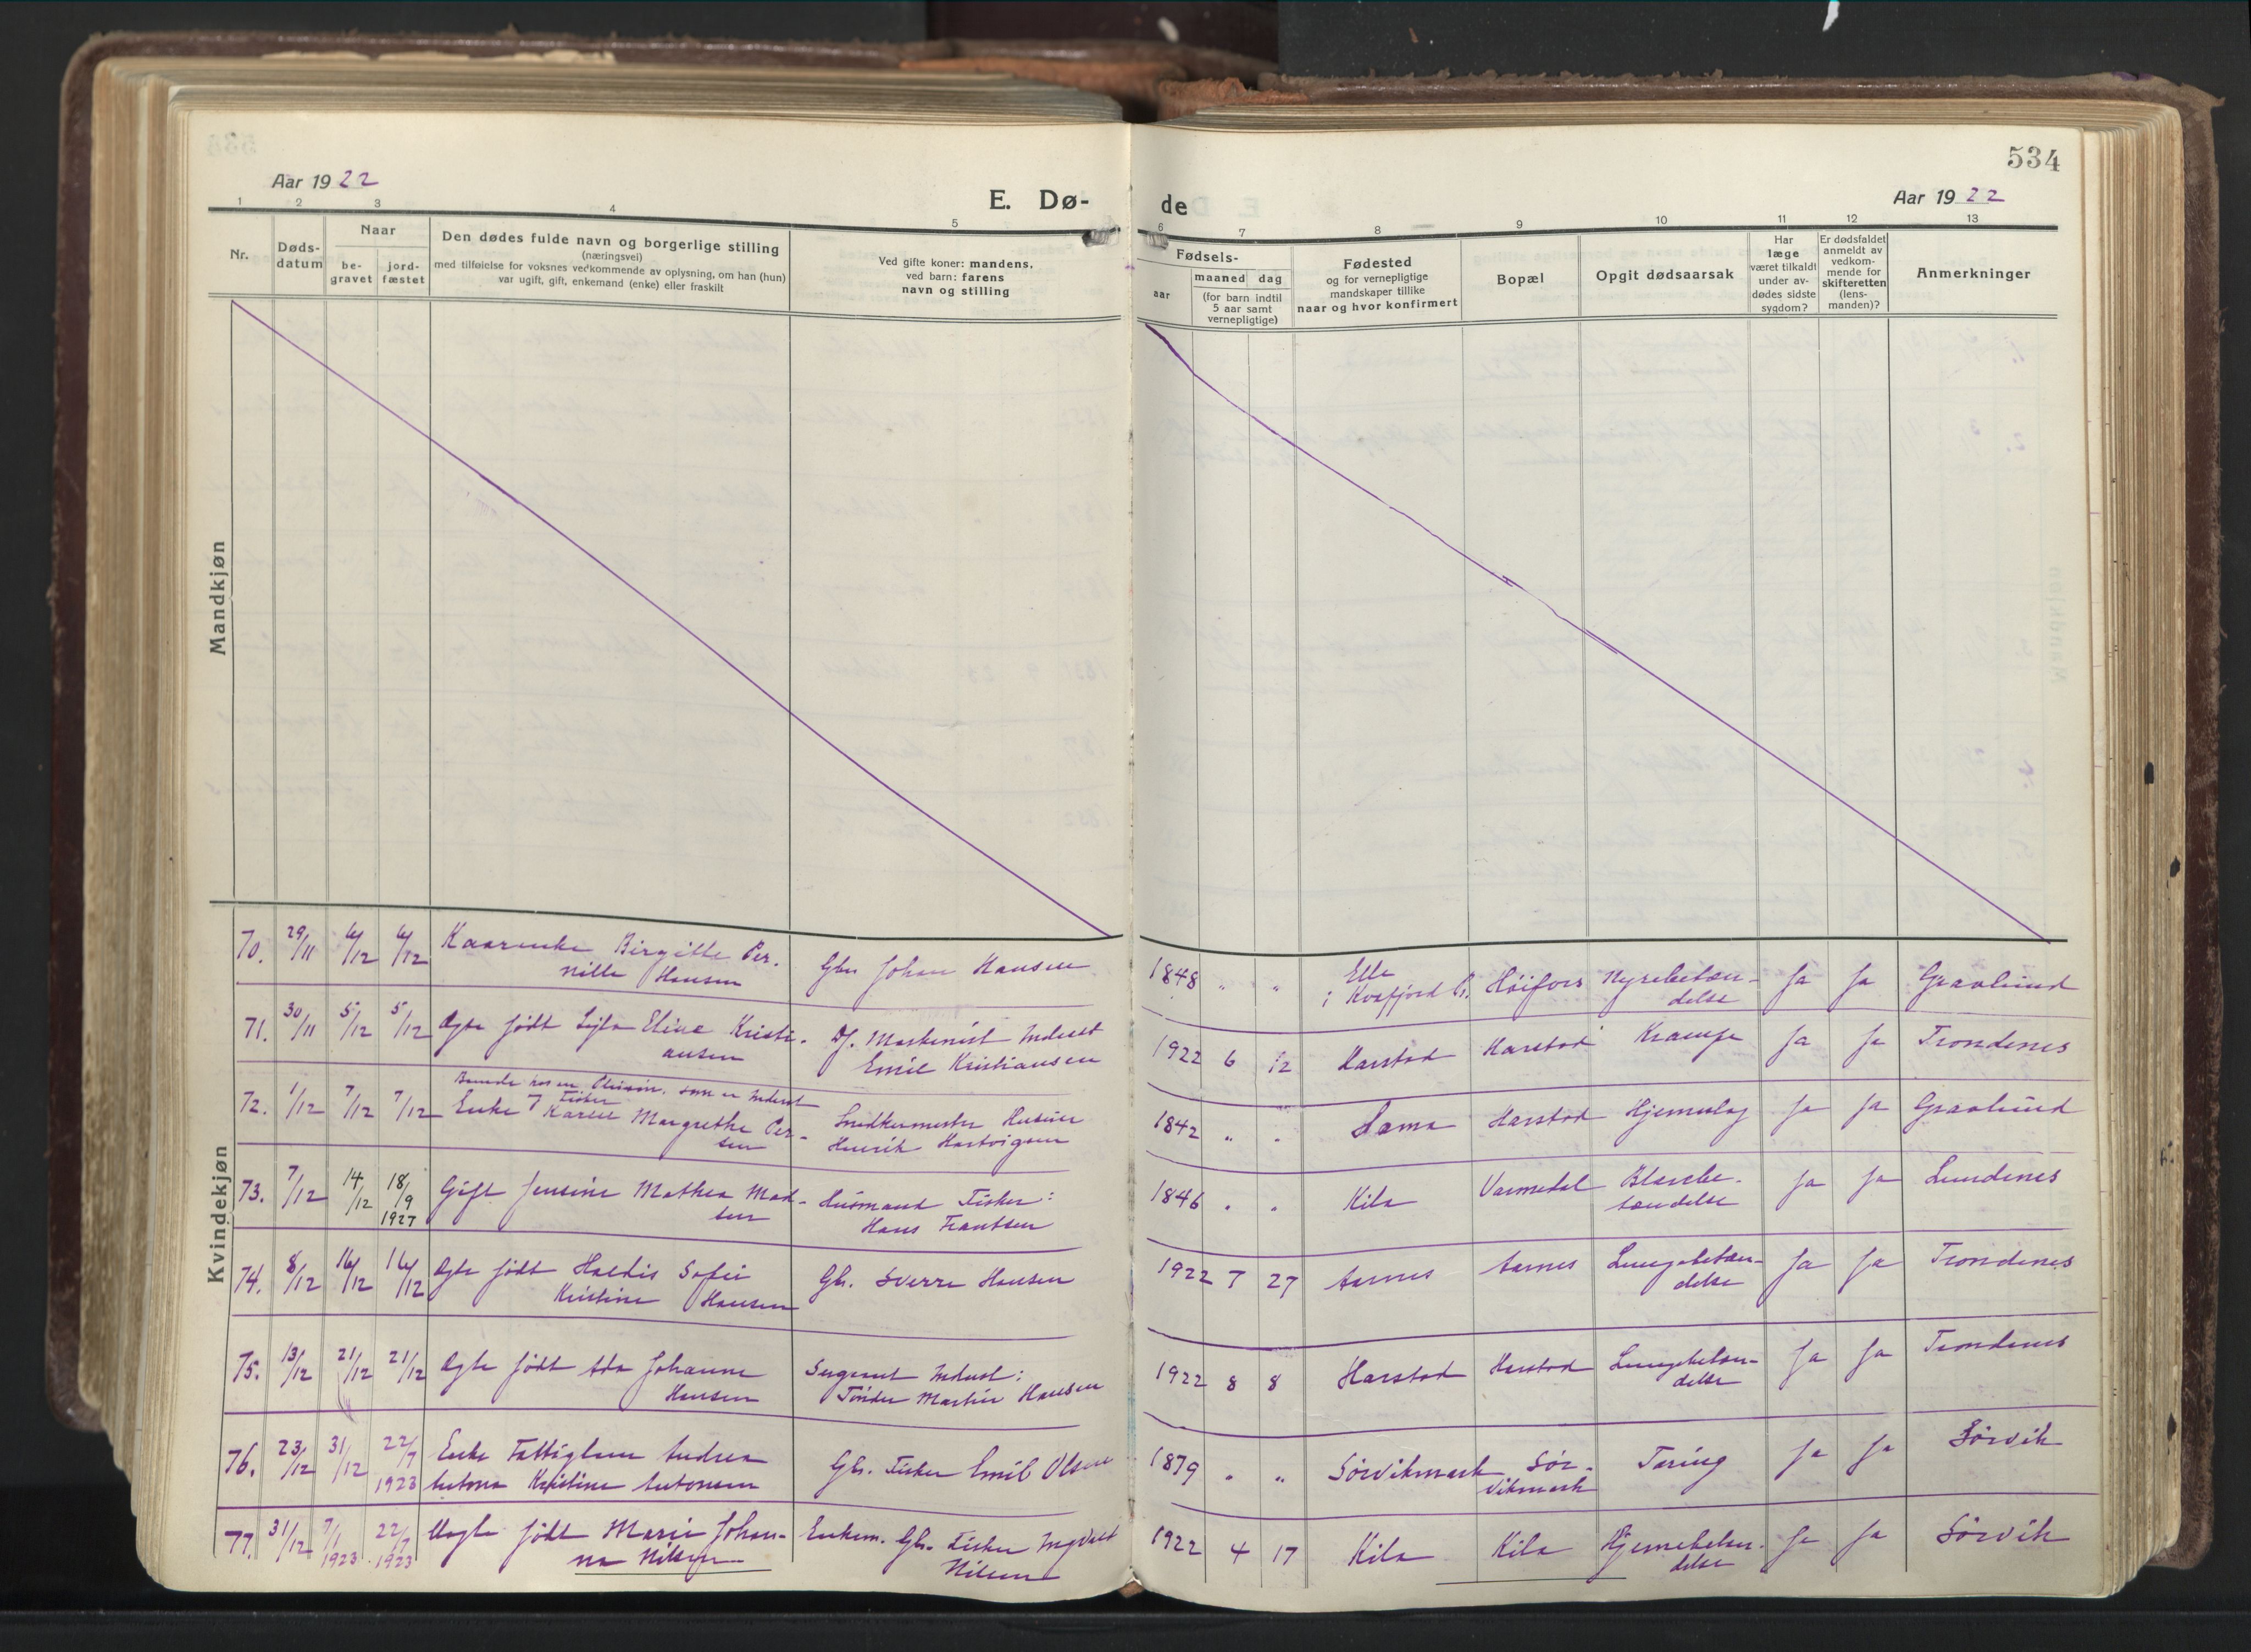 534
Aar 1922
E. Dø-
de
Aar 1922
1 2 3 4 5 6 7 8 9 10 11 12 13
Nr.
Døds-
datum
Naar
be-
gravet
jord-
fæstet
Den dødes fulde navn og borgerlige stilling
(næringsvei)
med tilføielse for voksnes vedkommende av oplysning, om han (hun)
var ugift, gift, enkemand (enke) eller fraskilt
Ved gifte koner: mandens,
ved barn: farens
navn og stilling
Fødsels-
aar
maaned dag
(for barn indtil
5 aar samt
vernepligtige)
Fødested
og for vernepligtige
mandskaper tillike
naar og hvor konfirmert
Bopæl
Opgit dødsaarsak
Har
læge
været tilkaldt
under av-
dødes sidste
sygdom?
Er dødsfaldet
anmeldt av
vedkom-
mende for
skifteretten
(lens-
manden)?
Anmerkninger
Mandkjøn
Kvindekjøn
70. 29/11 6/12 6/12 Birgitte Per-
nille Hansen
Gbr. Johan Hansen
1848 " " Elle
i Kvæfjord P.
Høifors
Nyrebetæn-
delse
Ja Ja Gravlund
71. 30/11 5/12 5/12 Ægte født Eline Kristi-
ansen
Maskinist Inderst
Emil Kristiansen
1922 6 12 Harstad Harstad Krampe Ja Ja Trondenes
72. 1/12 7/12 7/12 som er Inderst
Fisker
Enke Karen Margrethe Per-
sen
Snedkermester
Henrik Hartvigsen
1842 " " Sama Harstad Hjerneslag Ja Ja Gravlund
73. 7/12 14/12 18/9
1927
Gift Jensine Mathea Mad-
sen
Husmand Fisker:
Hans Frantsen
1846 " " Kila
Blærebe-
tændelse
Ja Ja Lundenes
74. 8/12 16/12 16/12 Ægte født Haldis Sofie
Kristine Hansen
Gbr. Sverre Hansen
1922 7 27 Aarnes Aarnes
Lungebetæn-
delse
Ja Ja Trondenes
75. 13/12 21/12 21/12 Ægte født Ada Johanne
Hansen
Sergeant Inderst:
Martin Hansen
1922 8 8 Harstad Harstad
Lungebetæn-
delse
Ja Ja Trondenes
76. 23/12 31/12 22/7
1923
Enke Fattiglem Andrea
Antona Kristine Antonsen
Gbr. Fisker Emil Olsen
1879 " " Sørvikmark
Sør-
vikmark
Tæring Ja Ja Sørvik
77. 31/12 7/1
1923
22/7
1923
Uægte født Marie Johan-
na Nilsen
Enkem. Gbr. Fisker Ingvald
Nilsen
1922 4 17 Kila Kila
Hjernebetæn-
delse
Ja Ja Sørvik